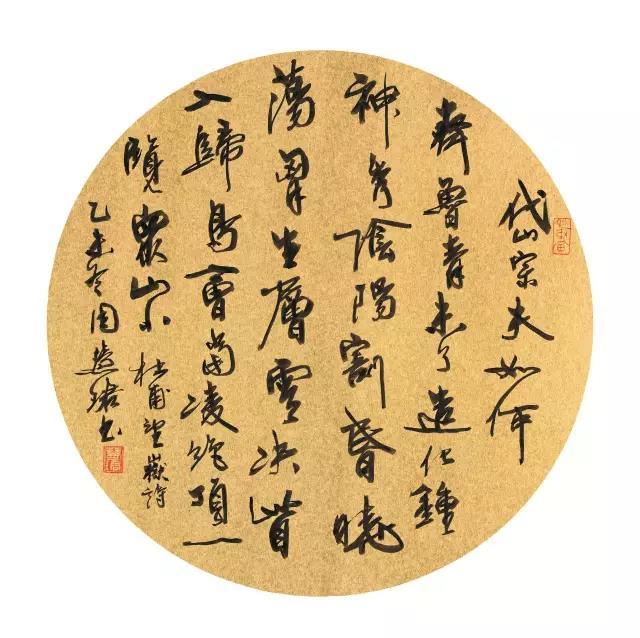 岱宗夫如何
齊魯青未了造化鍾
神秀陰陽割昏曉
蕩胷生層雲決眥
入歸鳥會當凌絕頂一
覽眾山小
杜甫望嶽詩
乙未冬周慧珺书